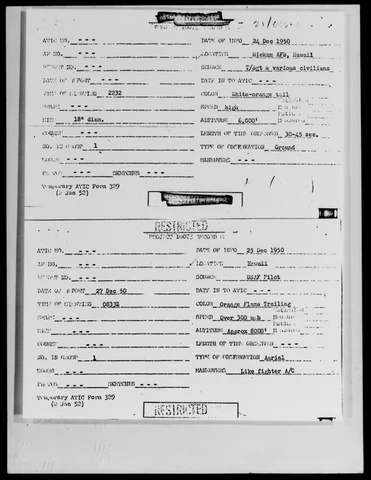 ATIC NO. - - - DATE OF INFO 24 Dec 1950
AF NO. - - - LOCATION Hickam AFB, Hawaii
REPORT NO. - - - SOURCE T/Sgt & various civilians
DATE OF REPORT - - - DATE IN TO ATIC - - -
TIME OF SIGHTING 2232 COLOR White-orange tail
SHAPE - - - SPEED high
SIZE 18" diam. ALTITUDE 6,000'
COURSE - - - LENGTH OF TIME OBSERVED 30-45 sec.
NO. IN GROUP 1 TYPE OF OBSERVATION Ground
SOUND - - - MANEUVERS - - -
PHOTOS - - - SKETCHES - - -
Temporary ATIC Form 329
(2 Jan 52)
RESTRICTED
PROJECT 10073 RECORD
ATIC NO. - - - DATE OF INFO 25 Dec 1950
AF NO. - - - LOCATION Hawaii
REPORT NO. - - - SOURCE USAF Pilot
DATE OF REPORT 27 Dec 50 DATE IN TO ATIC - - -
TIME OF SIGHTING 0833Z COLOR Orange Flame Trailing
SHAPE - - - SPEED Over 300 mph
SIZE - - - ALTITUDE Approx 8000'
COURSE - - - LENGTH OF TIME OBSERVED - - -
NO. IN GROUP 1 TYPE OF OBSERVATION Aerial
SOUND - - - MANEUVERS Like fighter A/C
PHOTOS - - - SKETCHES - - -
Temporary ATIC Form 329
(2 Jan 52)
RESTRICTED